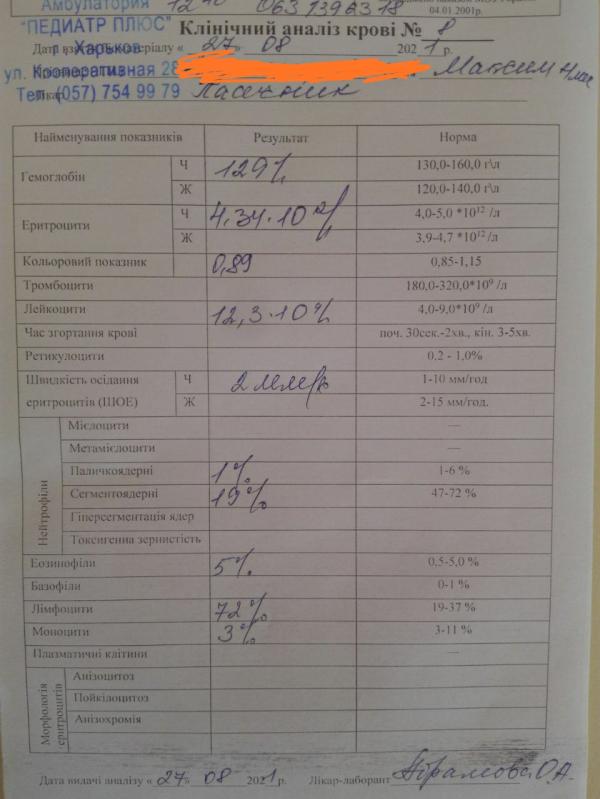 Амбулатория
"ПЕДИАТР ПЛЮС"
г. Харьков
ул. Кооперативная 28
Тел. (057) 754 99 79
04.01.2001р.
Клінічний аналіз крові № 8
Дата взяття біоматеріалу « 27 » 08 2021 р.
Максим
Лікар Пасечник
Найменування показників Результат Норма
Гемоглобін Ч 129 г/л 130,0-160,0 г\л
Ж 120,0-140,0 г\л
Еритроцити Ч 4,34·10¹²/л 4,0-5,0 *10¹² /л
Ж 3,9-4,7 *10¹² /л
Кольоровий показник 0,89 0,85-1,15
Тромбоцити 180,0-320,0*10⁹ /л
Лейкоцити 12,3·10⁹/л 4,0-9,0*10⁹ /л
Час згортання крові поч. 30сек.-2хв., кін. 3-5хв.
Ретикулоцити 0,2 - 1,0%
Швидкість осідання еритроцитів (ШОЕ) Ч 2 мм/г 1-10 мм/год
Ж 2-15 мм/год.
Нейтрофіли
Мієлоцити —
Метамієлоцити —
Паличкоядерні 1% 1-6 %
Сегментоядерні 19% 47-72 %
Гіперсегментація ядер
Токсигенна зернистість
Еозинофіли 5% 0,5-5,0 %
Базофіли 0-1 %
Лімфоцити 72% 19-37 %
Моноцити 3% 3-11 %
Плазматичні клітини —
Морфологія еритроцитів
Анізоцитоз
Пойкілоцитоз
Анізохромія
Дата видачі аналізу « 27 » 08 2021 р. Лікар-лаборант Абрамова О.А.